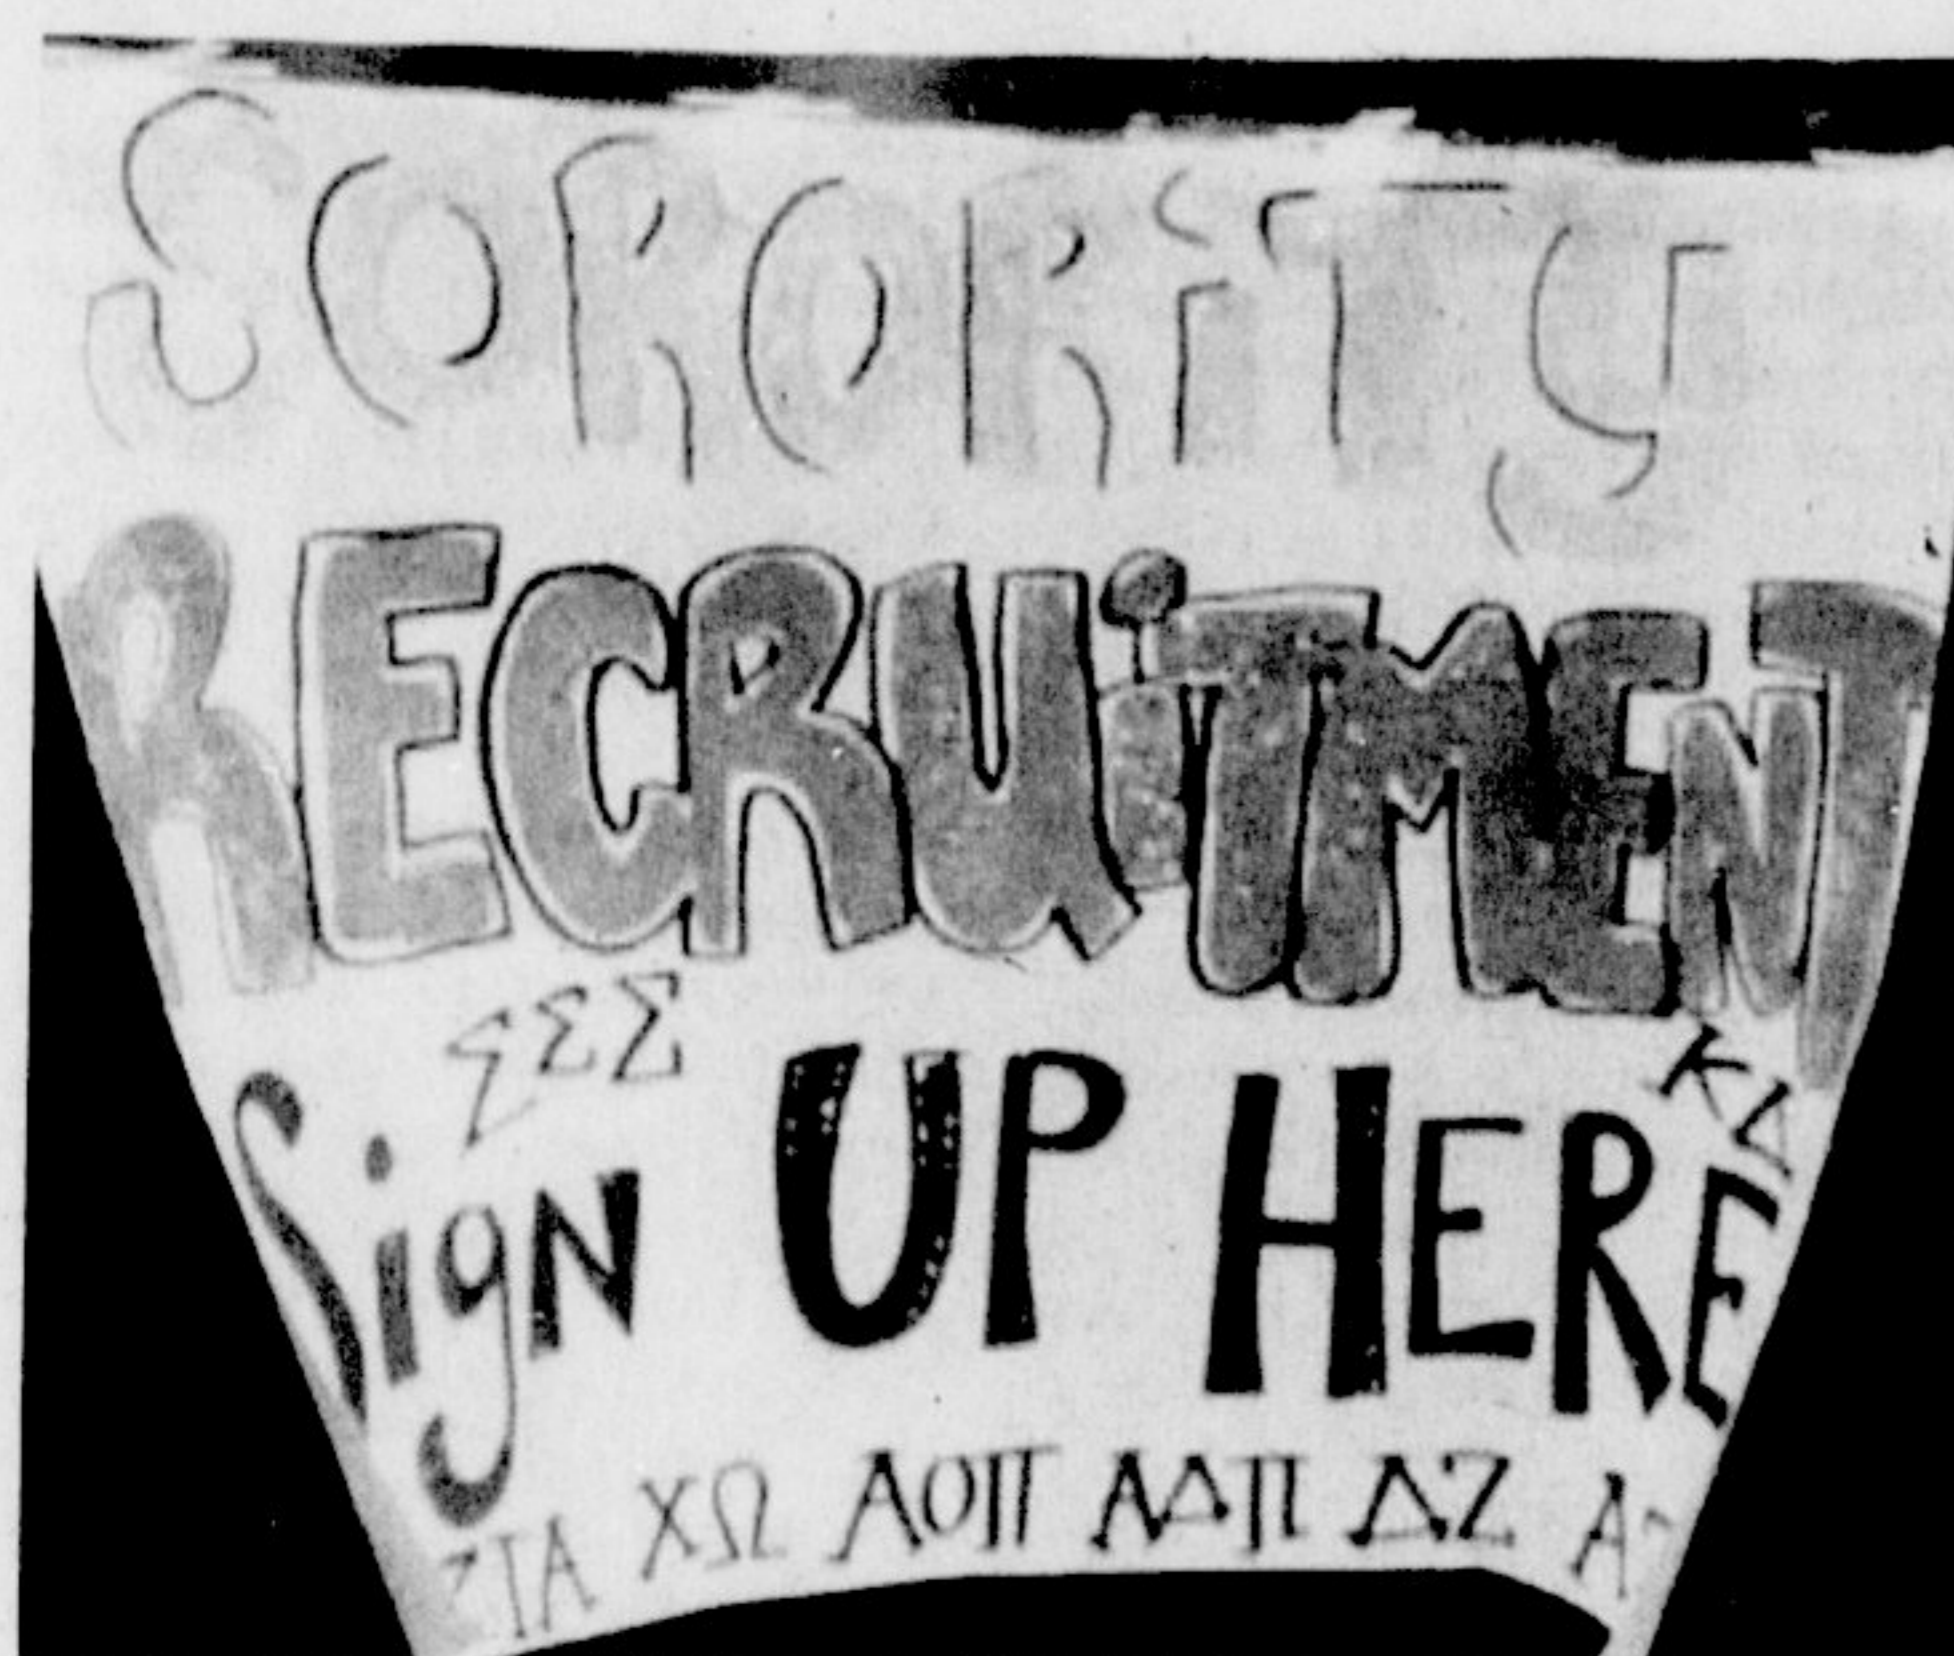 SORORiTY
RECRUiTMENT
ΣΣΣ
KΔ
SigN UP HERE
ΧΩ ΑΟΠ ΑΔΠ ΔΖ